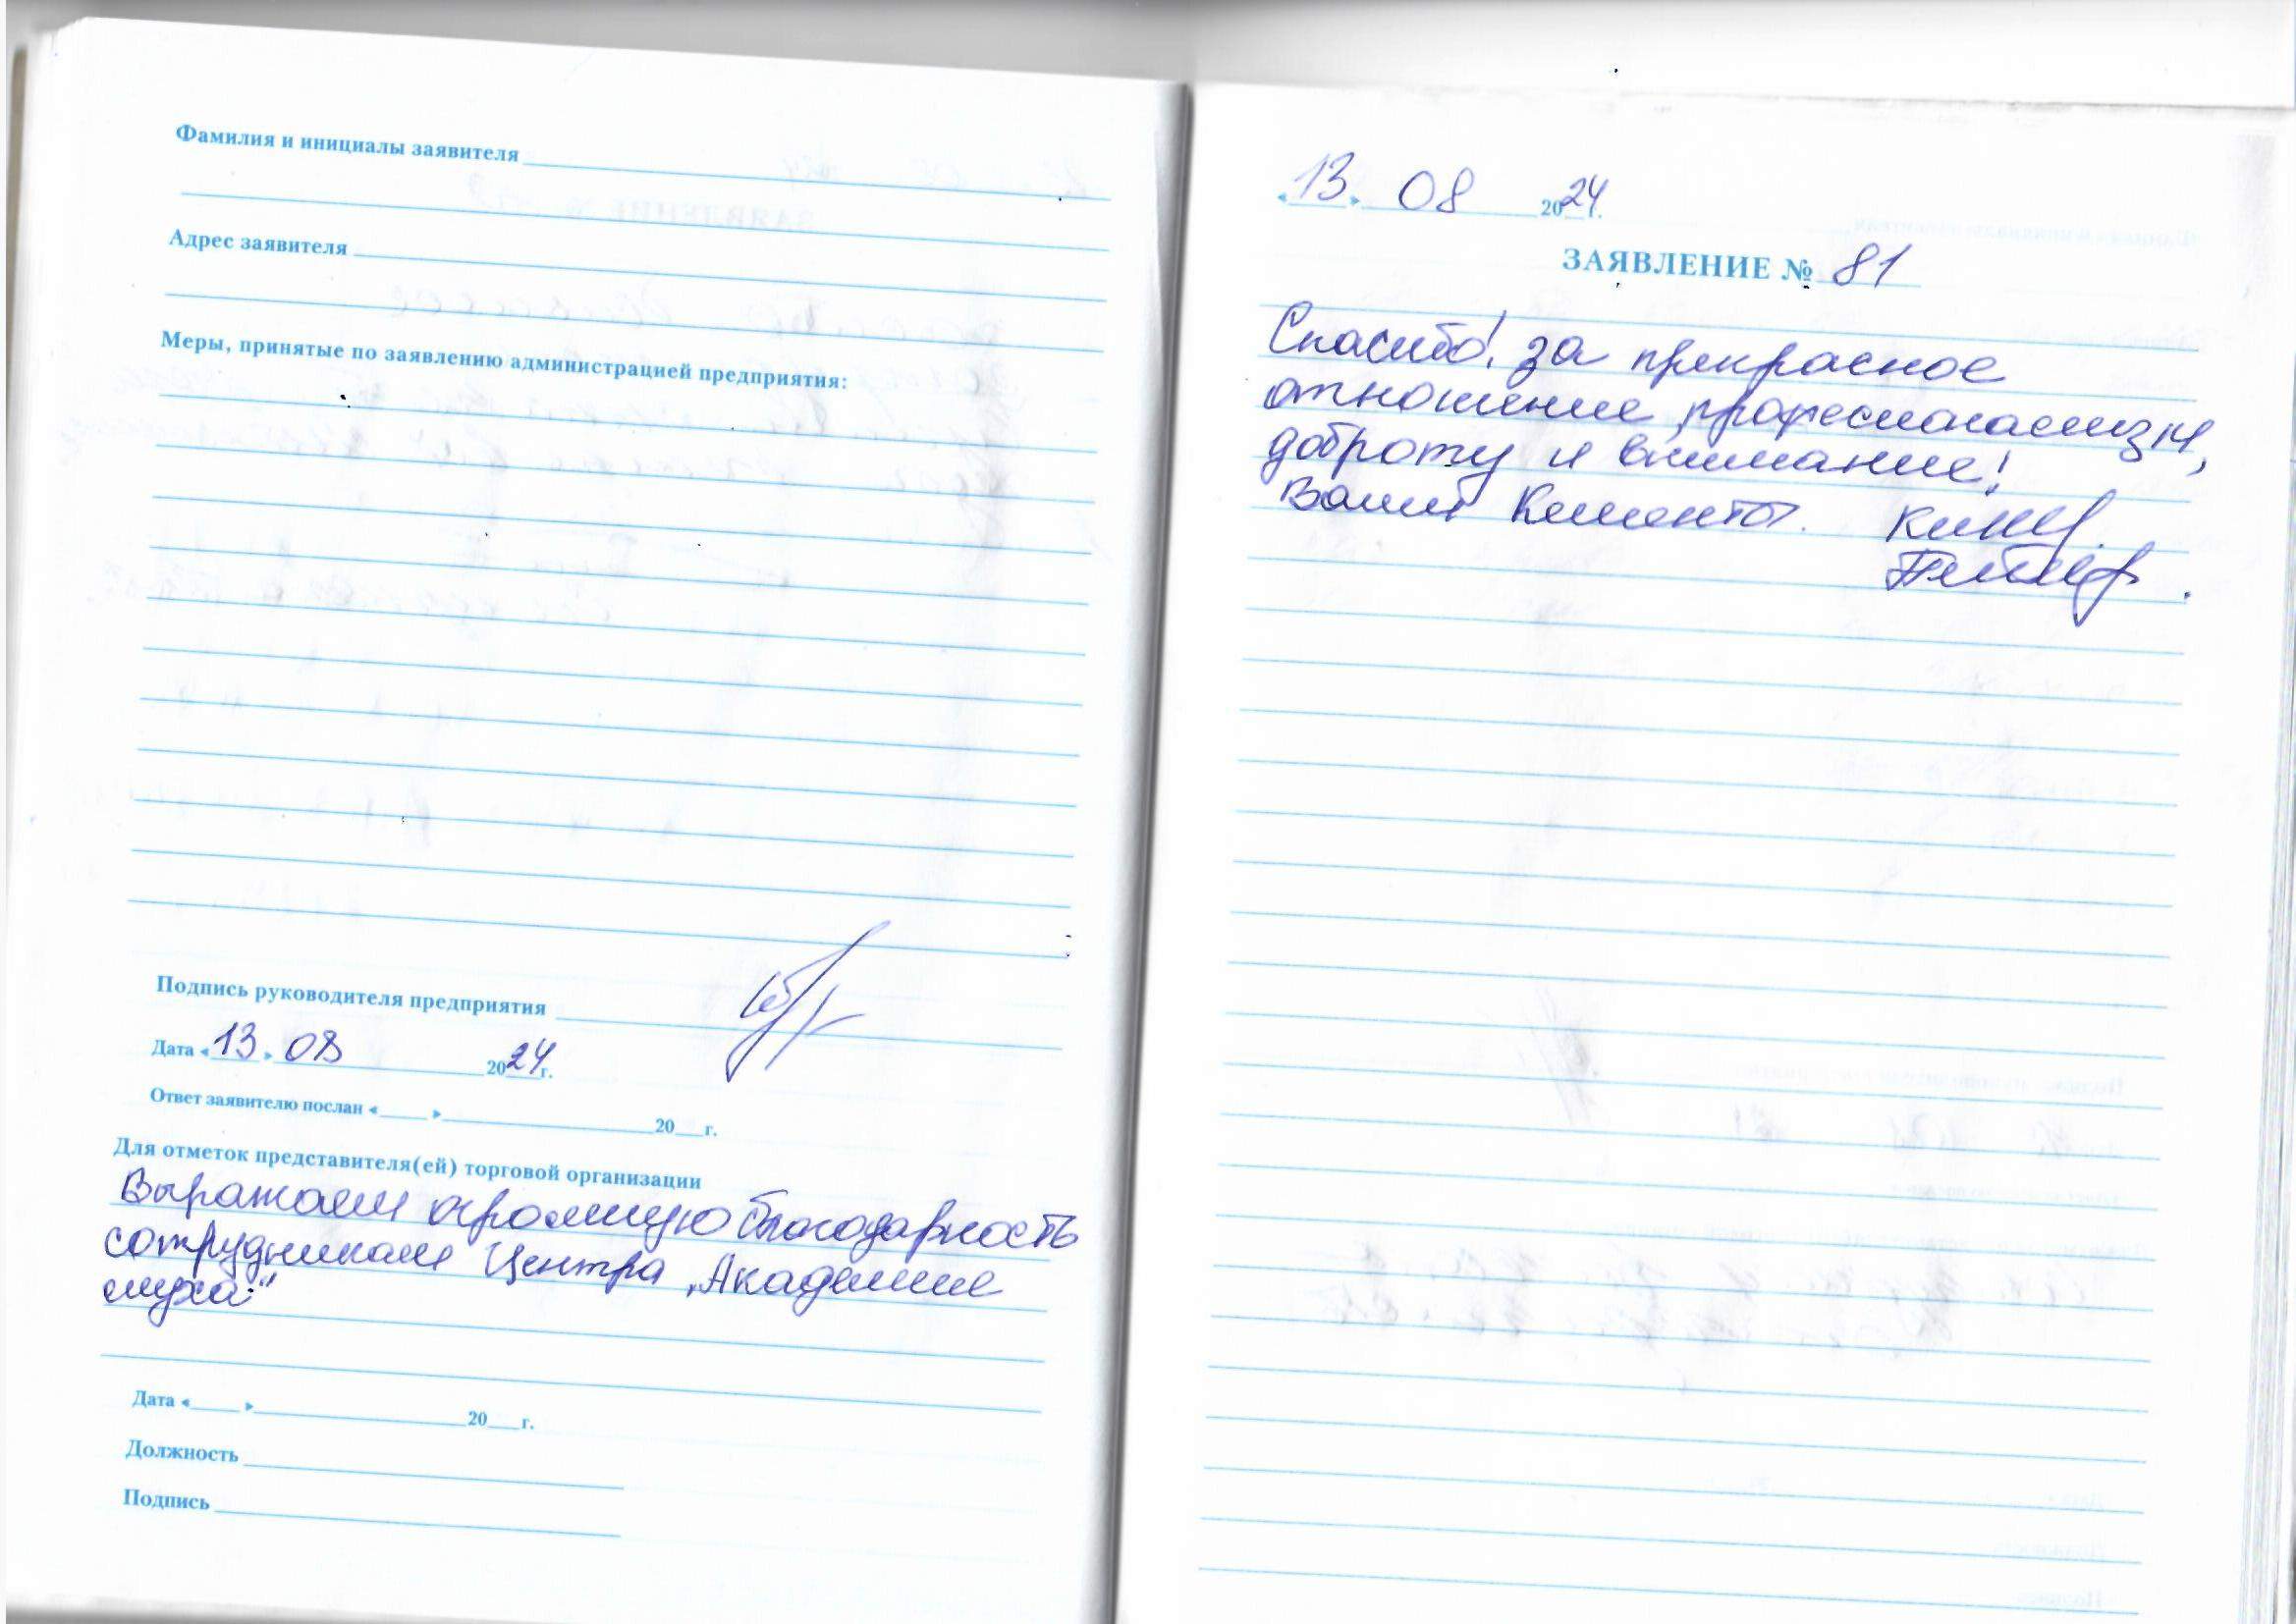 Фамилия и инициалы заявителя
Адрес заявителя
Меры, принятые по заявлению администрацией предприятия:
Подпись руководителя предприятия
Дата «13» 08 2024г.
Ответ заявителю послан « » 20 г.
Для отметок представителя(ей) торговой организации
Выражаем огромную благодарность
сотрудникам Центра „Академие
слуха."
Дата « » 20 г.
Должность
Подпись
«13» 08 2024г.
ЗАЯВЛЕНИЕ № 81
Спасибо! за прекрасное
отношение, професионализм,
доброту и внимание!
Ваши Клиенты.